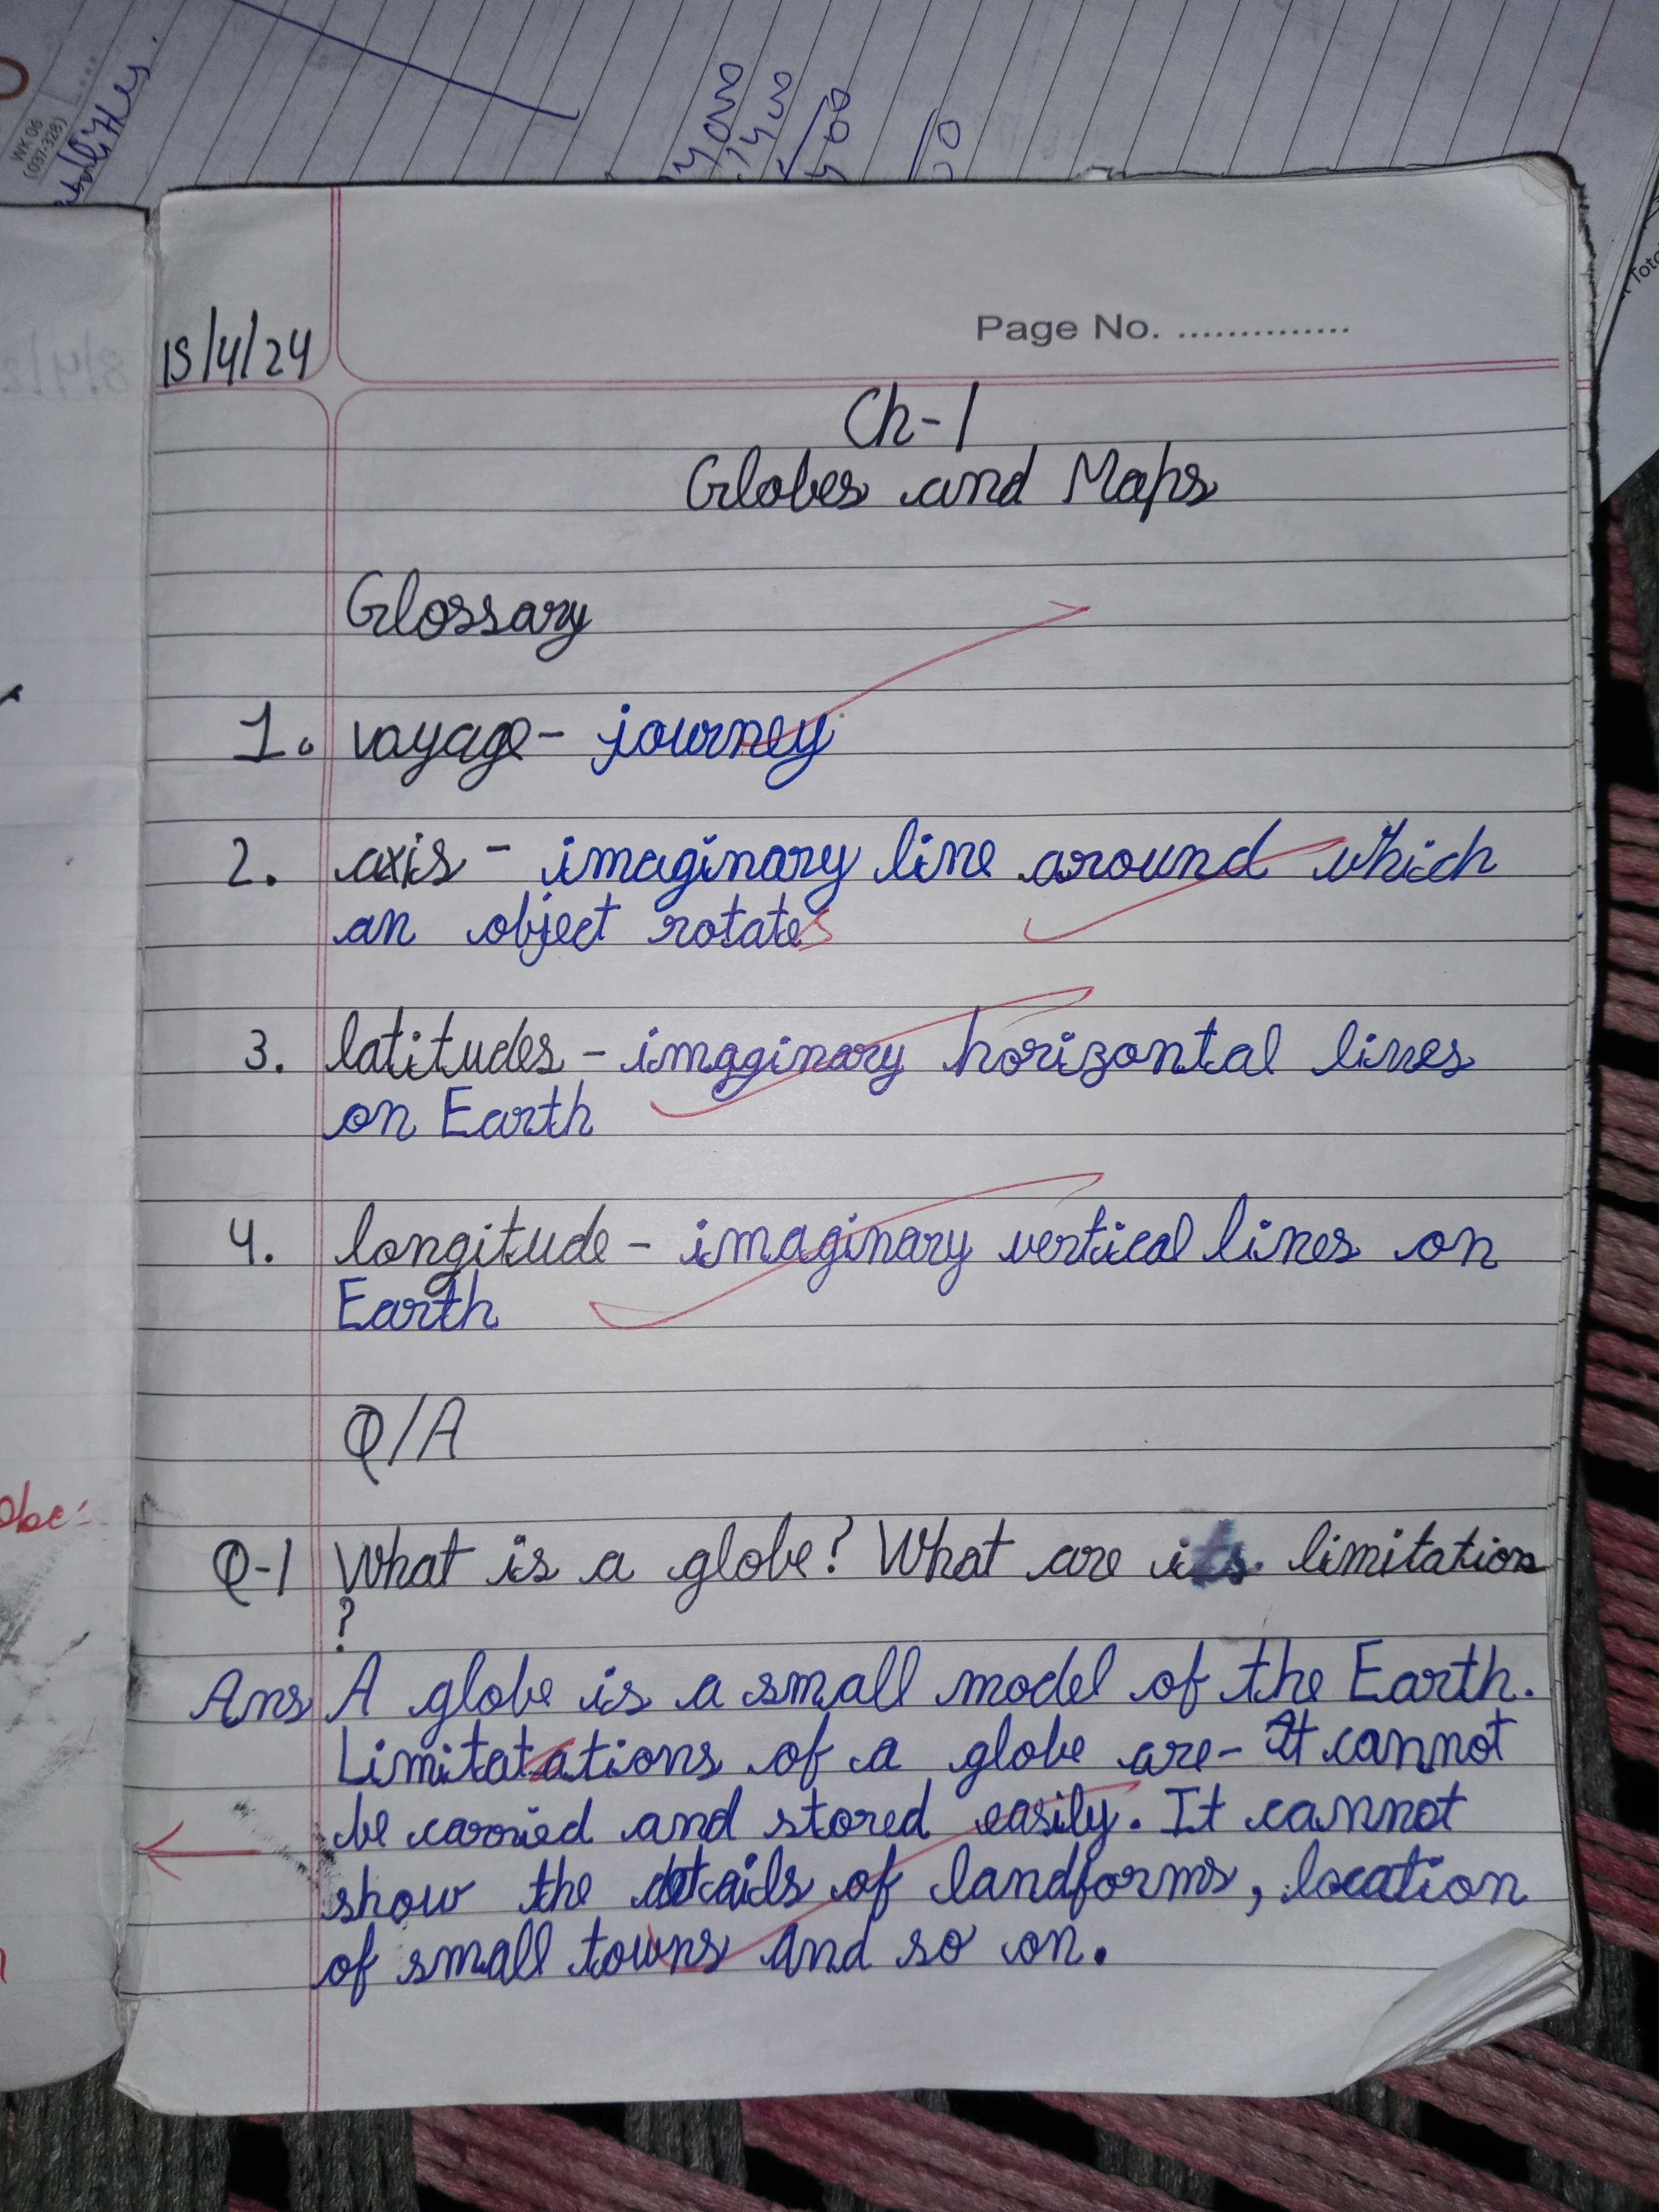 WK 06
(037-328)
15/4/24
Page No. ...............
Ch-1
Globes and Maps
Glossary
1. voyage - journey
2. axis - imaginary line around which
an object rotates
3. latitudes - imagginary horizontal lines
on Earth
4. longitude - imaginary vertical lines on
Earth
Q/A
Q-1 What is a globe? What are its limitation
?
Ans A globe is a small model of the Earth.
Limitatations of a globe are- It cannot
be carried and stored easily. It cannot
show the details of landforms, location
of small towns and so on.